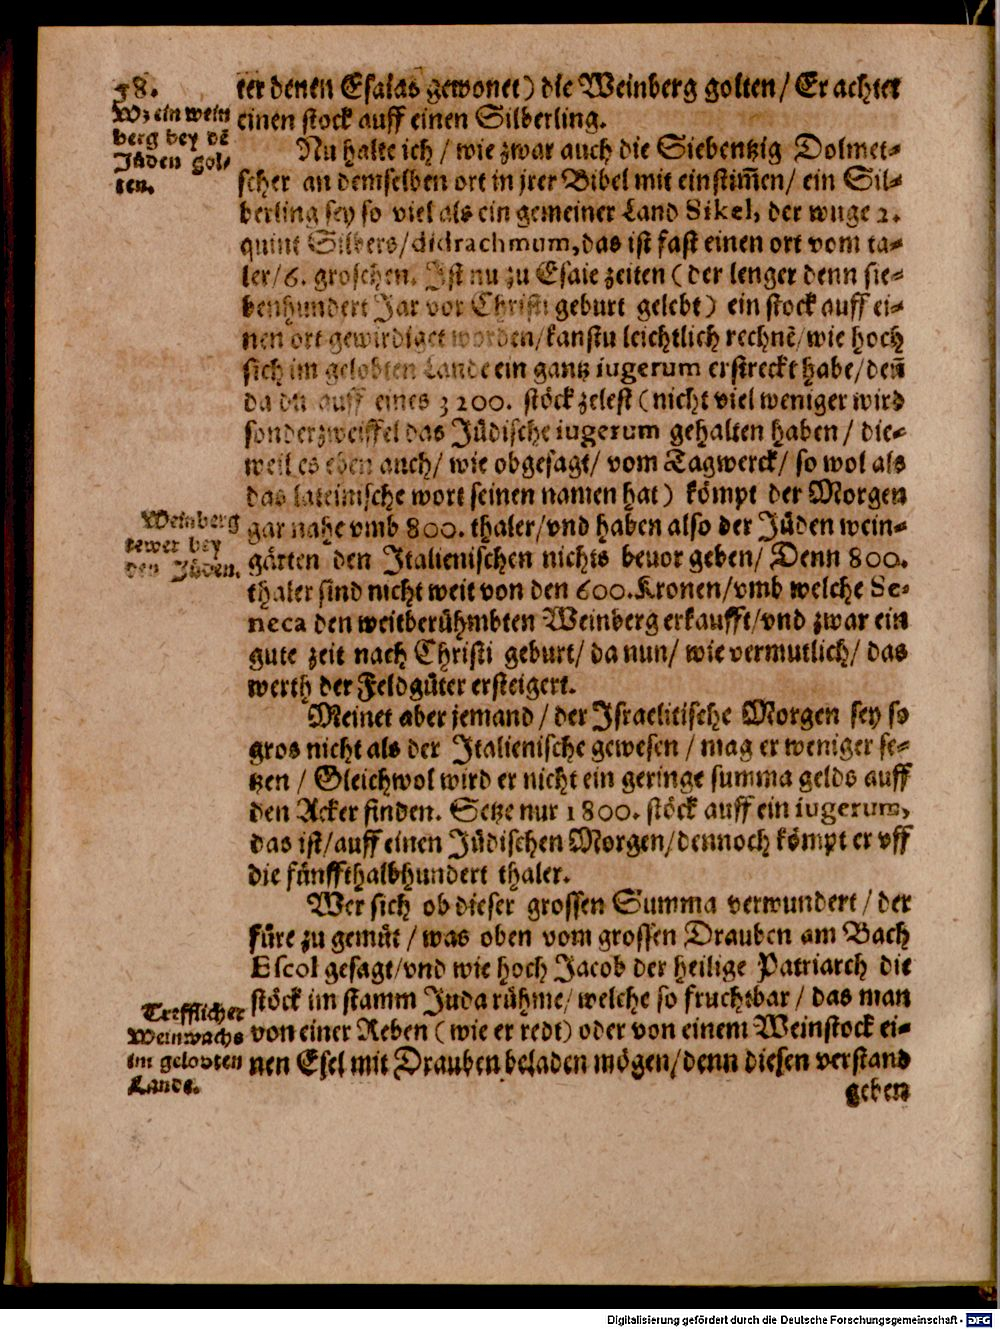 58.
Wz ein wein
berg bey dẽ
Jüden gol/
ten.
ter denen Esaias gewonet) die Weinberg golten/ Er achtet
einen stock auff einen Silberling.
Nu halte ich / wie zwar auch die Siebentzig Dolmet-
scher an demselben ort in jrer Bibel mit einstim̃en/ ein Sil-
berling sey so viel als ein gemeiner Land Sikel, der wuge 2.
quint Silbers/didrachmum,das ist fast einen ort vom ta-
ler/6. groschen. Ist nu zu Esaie zeiten (der lenger denn sie-
benhundert Jar vor Christi geburt gelebt) ein stock auff ei-
nen ort gewirdiget worden/kanstu leichtlich rechnẽ/wie hoch
sich im gelobten Lande ein gantz iugerum erstreckt habe/deñ
da du auff eines 3200. stöck zelest (nicht viel weniger wird
sonder zweiffel das Jüdische iugerum gehalten haben / die-
weil es eben auch/ wie obgesagt/ vom Tagwerck/ so wol als
das lateinische wort seinen namen hat) kömpt der Morgen
Weinberg
tewer bey
den Jüden.
gar nahe vmb 800. thaler/vnd haben also der Jüden wein-
gärten den Italienischen nichts beuor geben/ Denn 800.
thaler sind nicht weit von den 600.Kronen/vmb welche Se-
neca den weitberühmbten Weinberg erkaufft/vnd zwar ein
gute zeit nach Christi geburt/ da nun/ wie vermutlich/ das
werth der Feldgüter ersteigert.
Meinet aber jemand / der Israelitische Morgen sey so
gros nicht als der Italienische gewesen / mag er weniger se-
tzen / Gleichwol wird er nicht ein geringe summa gelds auff
den Acker finden. Setze nur 1800. stöck auff ein iugerum,
das ist/auff einen Jüdischen Morgen/dennoch kömpt er vff
die fünffthalbhundert thaler.
Wer sich ob dieser grossen Summa verwundert / der
füre zu gemüt / was oben vom grossen Drauben am Bach
Escol gesagt/vnd wie hoch Jacob der heilige Patriarch die
Trefflicher
Weinwachs
im gelobten
Lande.
stöck im stamm Juda rühme/ welche so fruchtbar / das man
von einer Reben (wie er redt) oder von einem Weinstock ei-
nen Esel mit Drauben beladen mögen/denn diesen verstand
geben
Digitalisierung gefördert durch die Deutsche Forschungsgemeinschaft - DFG